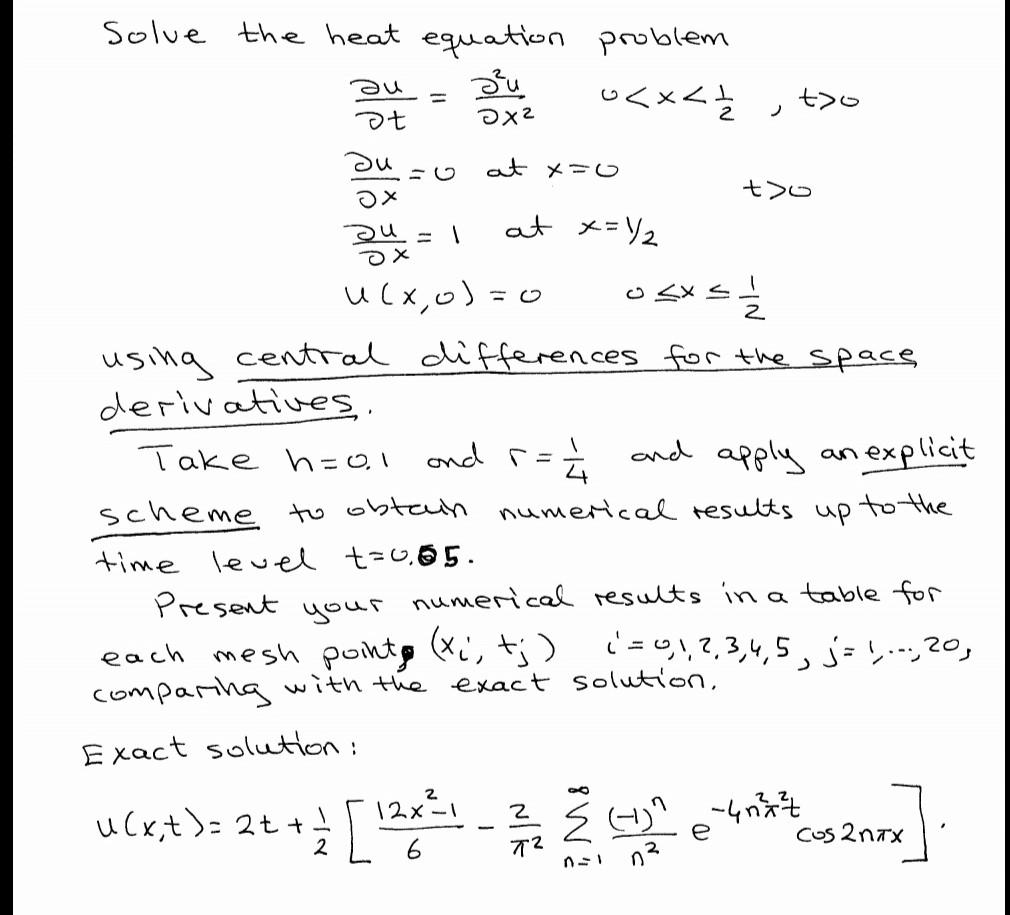 Solve the heat equation problem
∂u/∂t = ∂²u/∂x²   0<x<1/2 , t>0
∂u/∂x = 0 at x=0
t>0
∂u/∂x = 1 at x=1/2
u(x,0) = 0   0≤x≤1/2
using central differences for the space
derivatives.
Take h=0.1 and r=1/4 and apply an explicit
scheme to obtain numerical results up to the
time level t=0.05.
Present your numerical results in a table for
each mesh point, (xi, tj) i=0,1,2,3,4,5, j=1,...,20,
comparing with the exact solution.
Exact solution:
u(x,t)= 2t + 1/2 [ (12x²-1)/6 - 2/π² ∑_{n=1}^{∞} (-1)ⁿ/n² e^{-4n²π²t} cos2nπx ].